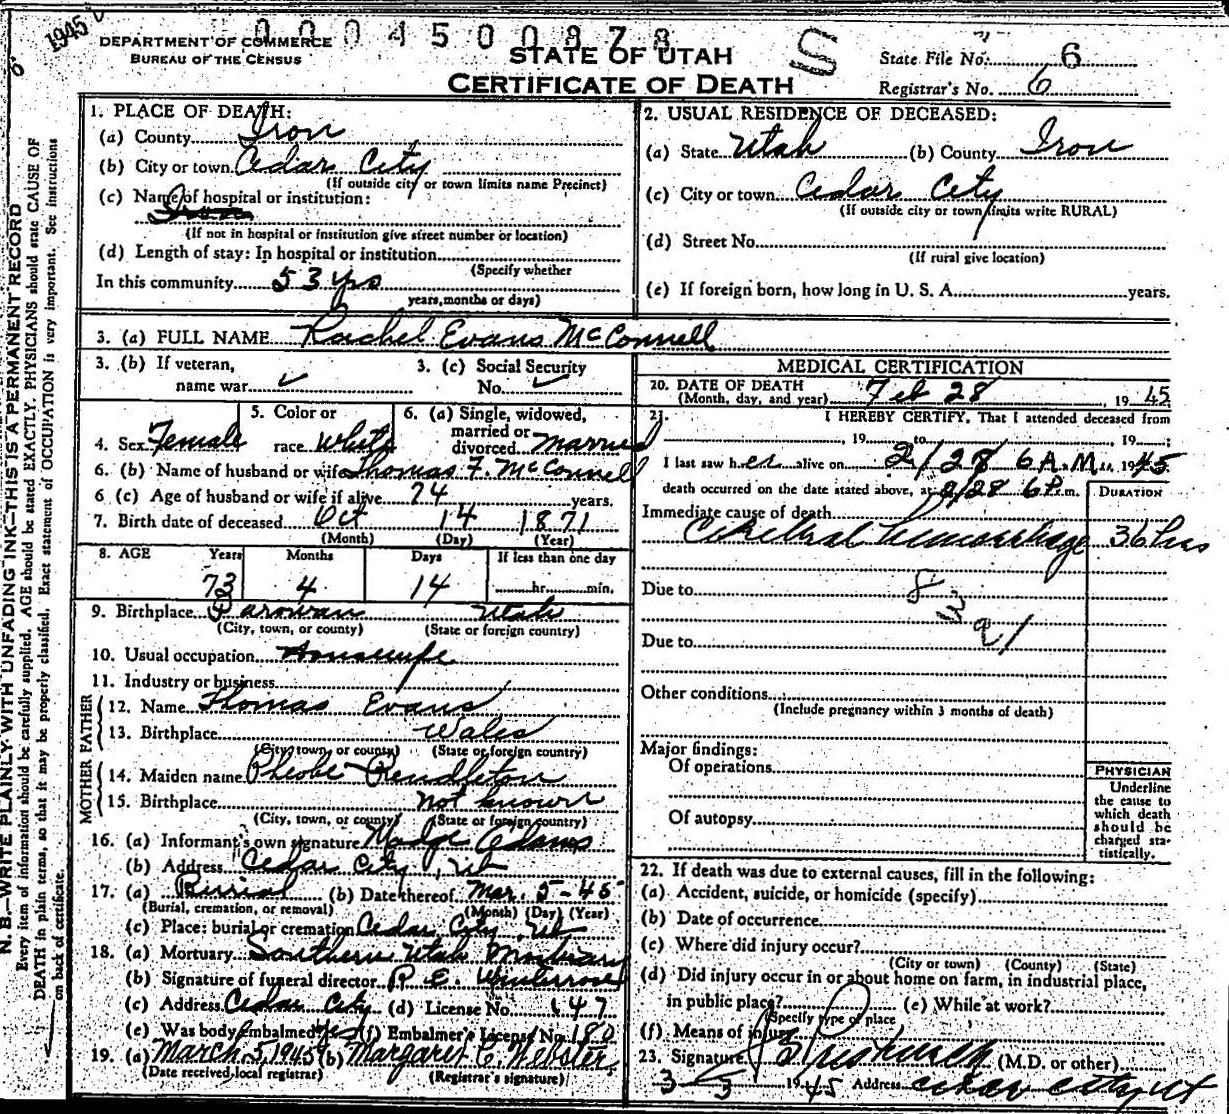 1945
0004500878
DEPARTMENT OF COMMERCE
BUREAU OF THE CENSUS
STATE OF UTAH
CERTIFICATE OF DEATH
S
State File No. 6
Registrar's No. 6
N. B.—WRITE PLAINLY WITH UNFADING INK—THIS IS A PERMANENT RECORD
Every item of information should be carefully supplied. AGE should be stated EXACTLY. PHYSICIANS should state CAUSE OF
DEATH in plain terms, so that it may be properly classified. Exact statement of OCCUPATION is very important. See instructions
on back of certificate.
1. PLACE OF DEATH:
(a) County Iron
(b) City or town Cedar City
(If outside city or town limits name Precinct)
(c) Name of hospital or institution:
Iron
(If not in hospital or institution give street number or location)
(d) Length of stay: In hospital or institution
(Specify whether
In this community 53 yrs
years, months or days)
2. USUAL RESIDENCE OF DECEASED:
(a) State Utah (b) County Iron
(c) City or town Cedar City
(If outside city or town limits write RURAL)
(d) Street No.
(If rural give location)
(e) If foreign born, how long in U. S. A. years.
3. (a) FULL NAME Rachel Evans McConnell
3. (b) If veteran,
name war ✓
3. (c) Social Security
No. ✓
4. Sex Female
5. Color or
race White
6. (a) Single, widowed,
married or
divorced married
6. (b) Name of husband or wife Thomas F. McConnell
6 (c) Age of husband or wife if alive 74 years.
7. Birth date of deceased Oct 14 1871
(Month) (Day) (Year)
8. AGE Years Months Days If less than one day
73 4 14 hr. min.
9. Birthplace Parowan Utah
(City, town, or county) (State or foreign country)
10. Usual occupation Housewife
11. Industry or business
FATHER
12. Name Thomas Evans
13. Birthplace Wales
(City, town, or county) (State or foreign country)
MOTHER
14. Maiden name Pheobe Pendleton
15. Birthplace not known
(City, town, or county) (State or foreign country)
16. (a) Informant's own signature Madge Adams
(b) Address Cedar City, Ut
17. (a) Burial (b) Date thereof Mar. 5-45
(Burial, cremation, or removal) (Month) (Day) (Year)
(c) Place: burial or cremation Cedar City Ut
18. (a) Mortuary Southern Utah Mortuary
(b) Signature of funeral director R. E. Winterrose
(c) Address Cedar City (d) License No. 147
(e) Was body embalmed? yes (f) Embalmer's License No. 180
19. (a) March 5, 1945 (b) Margaret C. Webster
(Date received local registrar) (Registrar's signature)
MEDICAL CERTIFICATION
20. DATE OF DEATH
(Month, day, and year) Feb 28, 1945
21. I HEREBY CERTIFY, That I attended deceased from
, 19 to , 19 ;
I last saw her alive on 2/28 6 A.M., 1945
death occurred on the date stated above, at 2/28 6 P.m.
DURATION
Immediate cause of death
Cerebral hemorrhage 36 hrs
Due to 83a1
Due to
Other conditions
(Include pregnancy within 3 months of death)
Major findings:
Of operations
Of autopsy
PHYSICIAN
Underline
the cause to
which death
should be
charged sta-
tistically.
22. If death was due to external causes, fill in the following:
(a) Accident, suicide, or homicide (specify)
(b) Date of occurrence
(c) Where did injury occur?
(City or town) (County) (State)
(d) Did injury occur in or about home on farm, in industrial place,
in public place? (e) While at work?
(Specify type of place
(f) Means of injury
23. Signature (M.D. or other)
3 3 1945 Address Cedar City Ut